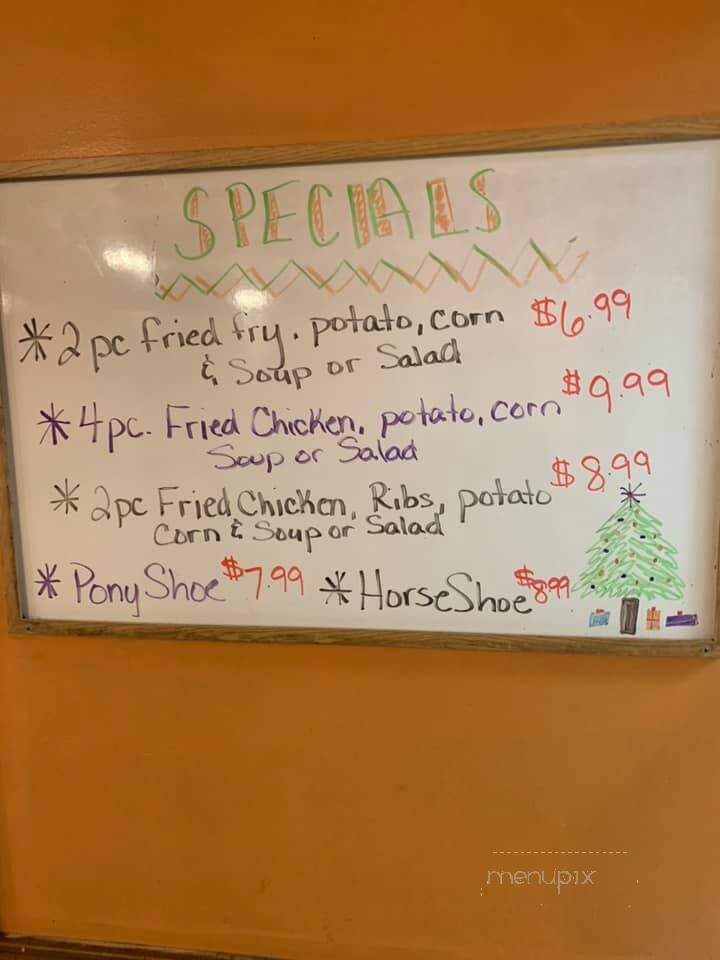 SPECIALS
*2pc fried fry. potato, corn $6.99
& Soup or Salad
*4pc. Fried Chicken, potato, corn $9.99
Soup or Salad
*2pc Fried Chicken, Ribs, potato $8.99
Corn & Soup or Salad
*Pony Shoe $7.99 *HorseShoe $8.99
menupix